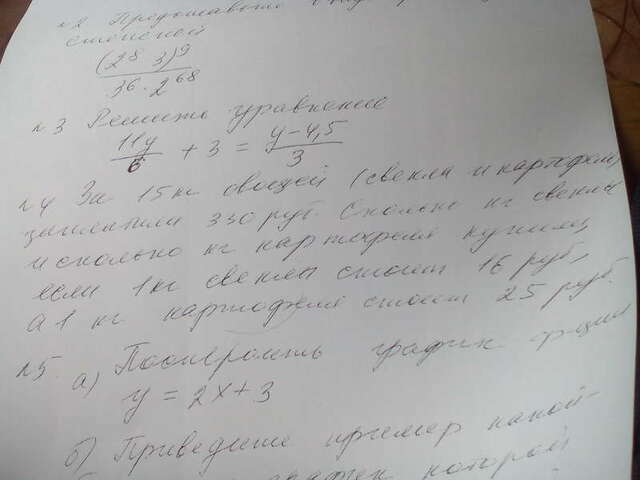 n2 Представьте в виде
степеней
(2⁸ 3)⁹
3⁶ · 2⁶⁸
n3 Решить уравнение
11y/6 + 3 = y – 4,5/3
n4 За 15 кг овощей (свекла и картофель)
заплатили 330 руб. Сколько кг свеклы
и сколько кг картофеля купили,
если 1 кг свеклы стоит 16 руб,
а 1 кг картофеля стоит 25 руб.
n5. а) Построить график ф-ции
y = 2x + 3
б) Приведите пример какой-
график которой